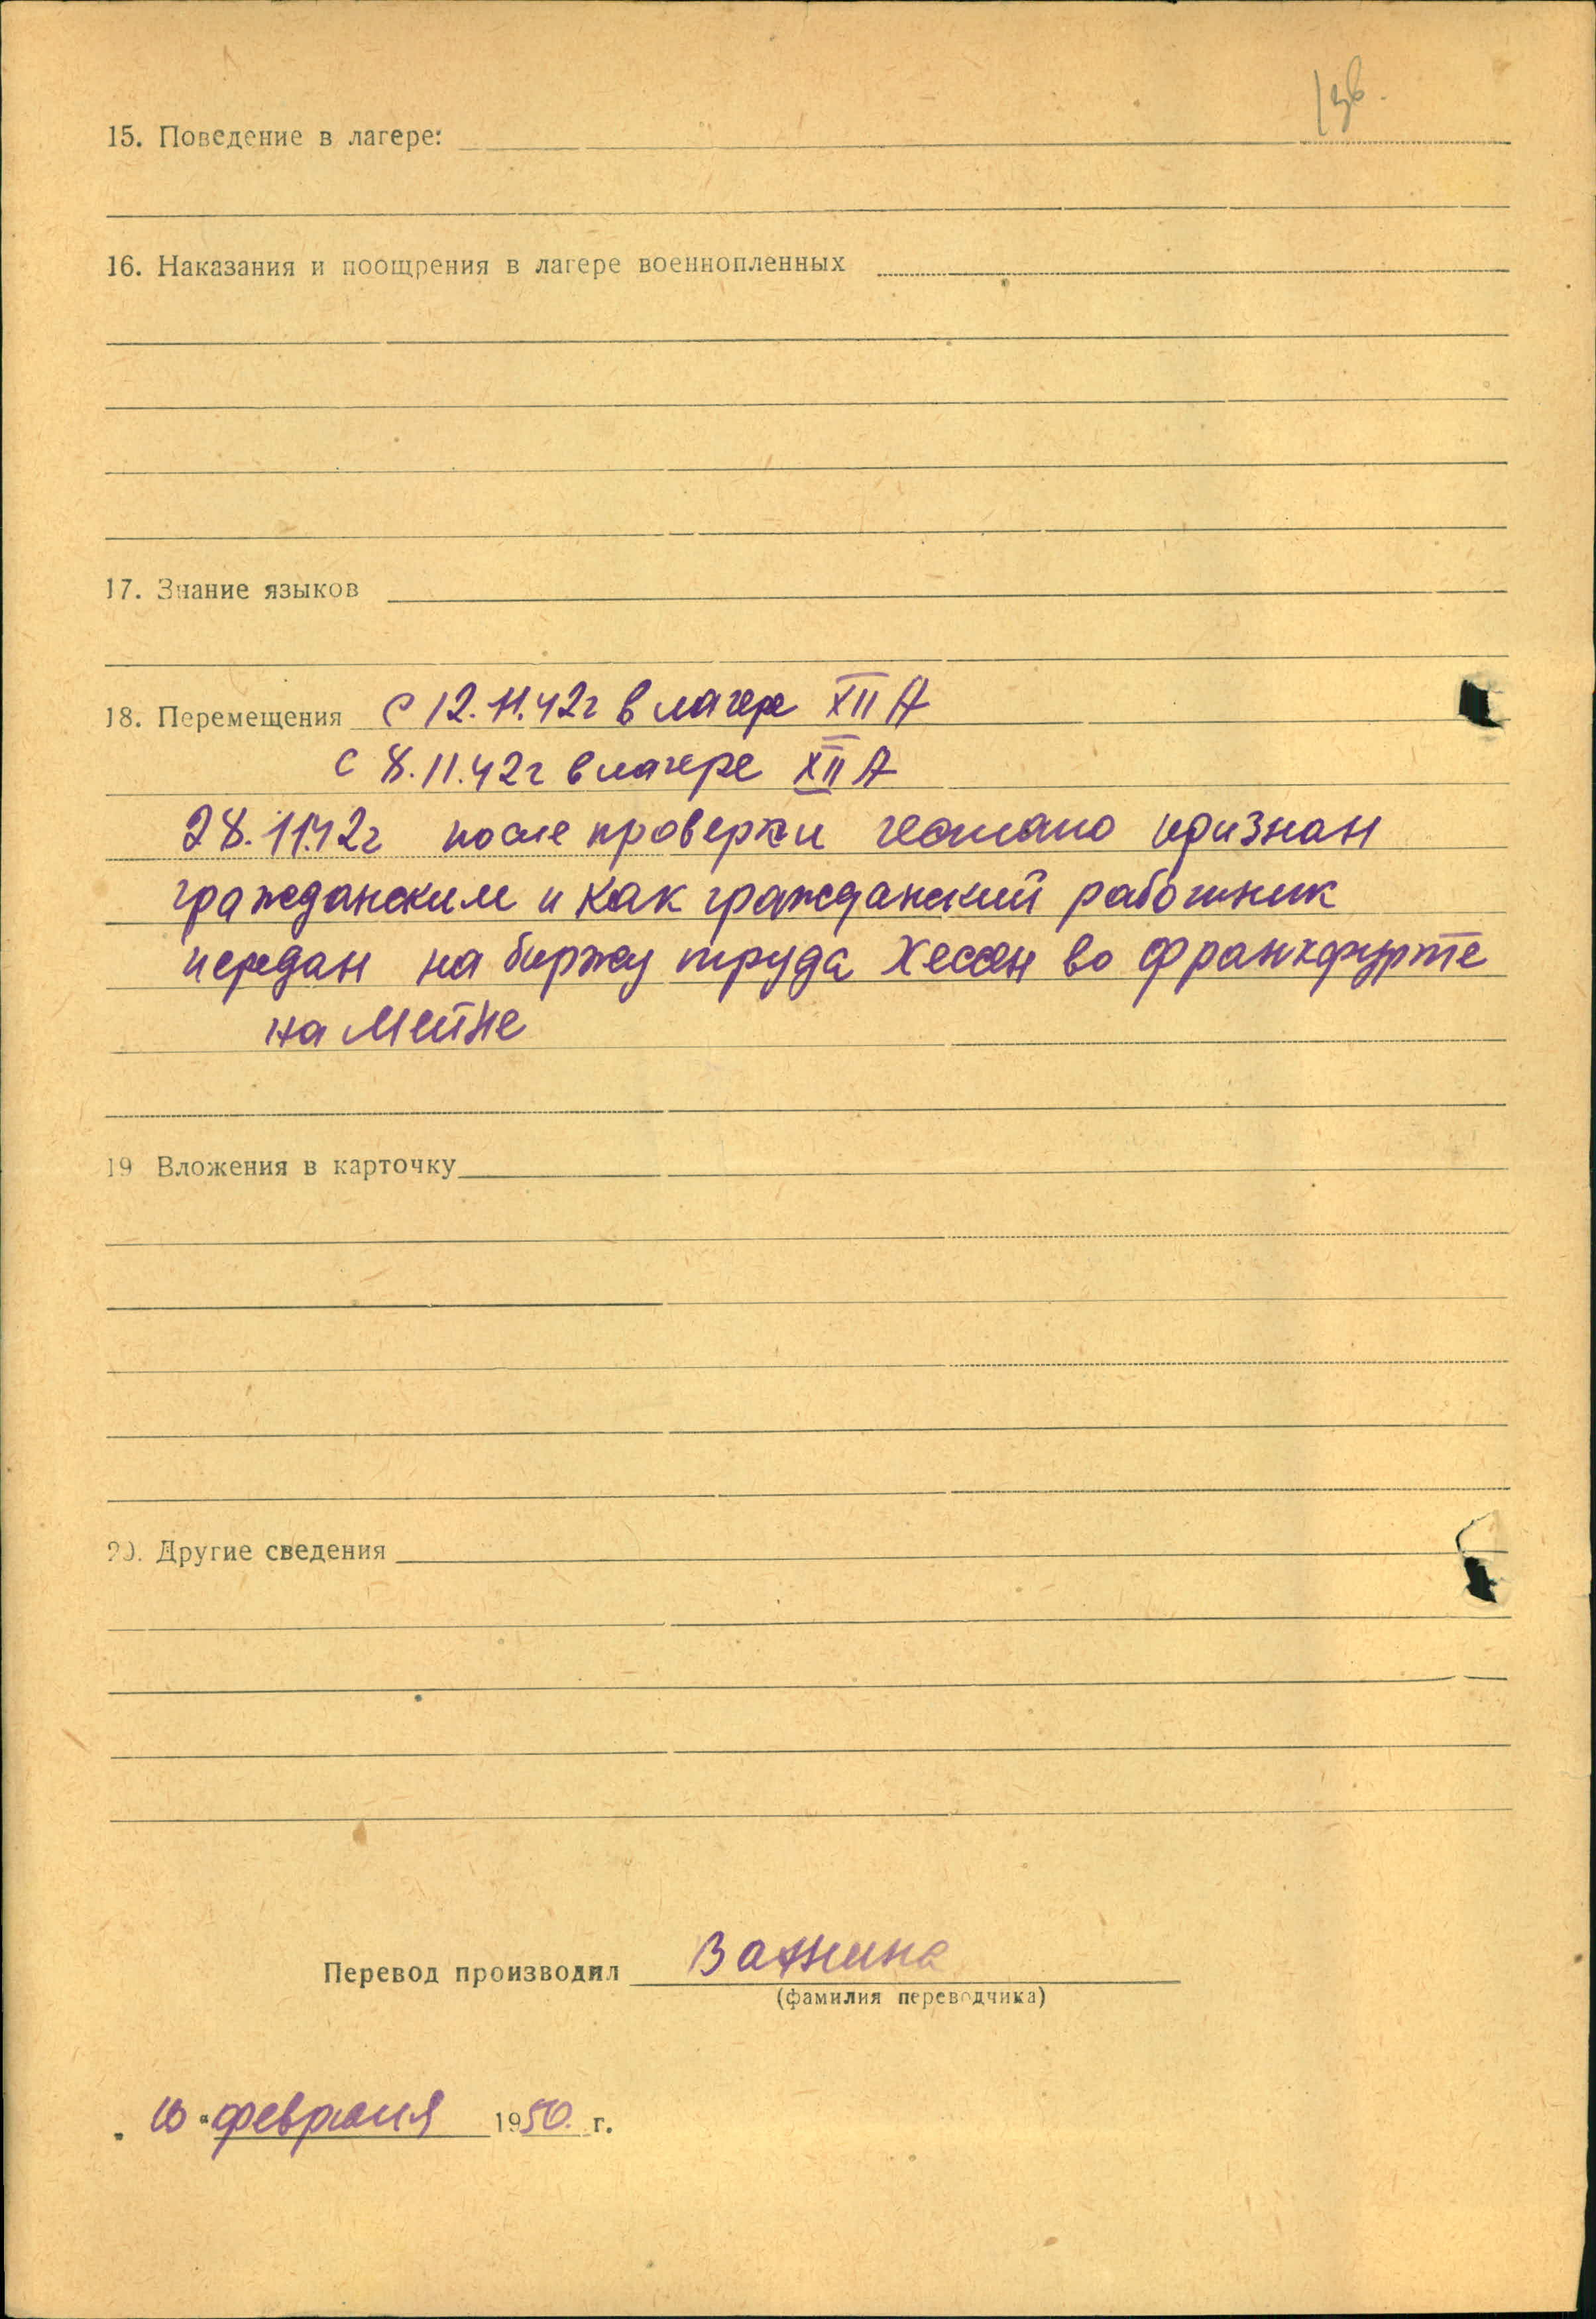 15. Поведение в лагере:
16. Наказания и поощрения в лагере военнопленных
17. Знание языков
18. Перемещения с 12.11.42г в лагере XII А
с 8.11.42г в лагере XII А
28.11.42г после проверки гестапо признан
гражданским и как гражданский работник
передан на биржу труда Хессен во Франкфурте
на Мейне
19 Вложения в карточку
20. Другие сведения
Перевод производил
(фамилия переводчика)
„10" февраля 1950 г.